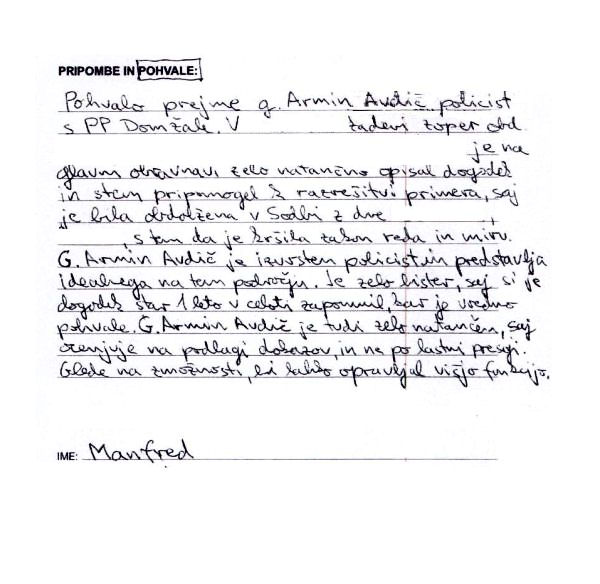 PRIPOMBE IN POHVALE:
Pohvalo prejme g. Armin Avdič policist
s PP Domžale. V zadevi zoper obd.
je na
glavni obravnavi zelo natančno opisal dogodek
in s tem pripomogel k razrešitvi primera, saj
je bila obdolžena v Sodbi z dne
, s tem da je kršila zakon reda in miru.
G. Armin Avdič je izvrsten policist in predstavlja
idealnega na tem področju. Je zelo bister, saj si je
dogodek star 1 leto v celoti zapomnil, kar je vredno
pohvale. G. Armin Avdič je tudi zelo natančen, saj
ocenjuje na podlagi dokazov, in ne po lastni presoji.
Glede na zmožnosti, bi lahko opravljal višjo funkcijo.
IME: Manfred